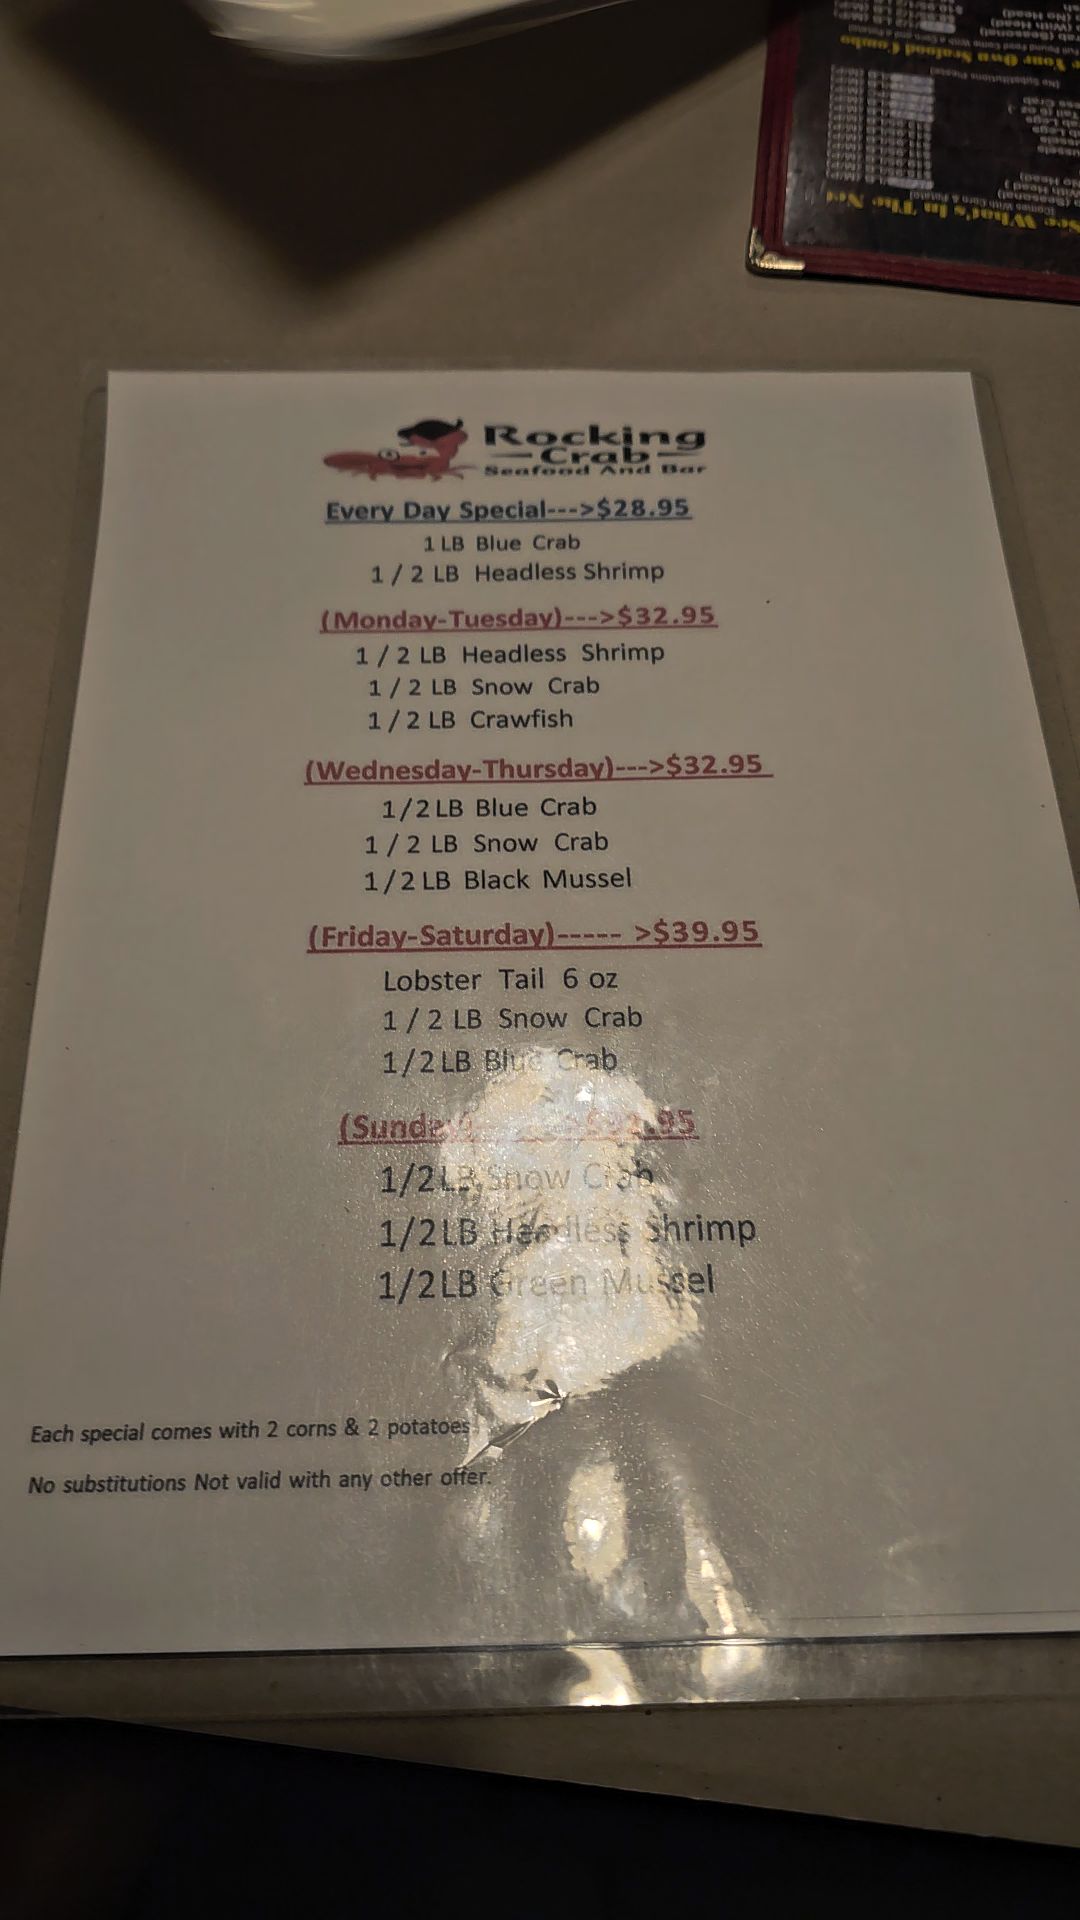 Rocking
Crab
Seafood And Bar
Every Day Special--->$28.95
1 LB Blue Crab
1 / 2 LB Headless Shrimp
(Monday-Tuesday)--->$32.95
1 / 2 LB Headless Shrimp
1 / 2 LB Snow Crab
1 / 2 LB Crawfish
(Wednesday-Thursday)--->$32.95
1/2 LB Blue Crab
1 / 2 LB Snow Crab
1/2 LB Black Mussel
(Friday-Saturday)----- >$39.95
Lobster Tail 6 oz
1 / 2 LB Snow Crab
1/2 LB Blue Crab
(Sunday)
1/2 LB Snow Crab
1/2 LB Headless Shrimp
1/2 LB Green Mussel
Each special comes with 2 corns & 2 potatoes
No substitutions Not valid with any other offer.
See What's In The Net
[Comes With Corn & Potato]
Your Own Seafood Combo